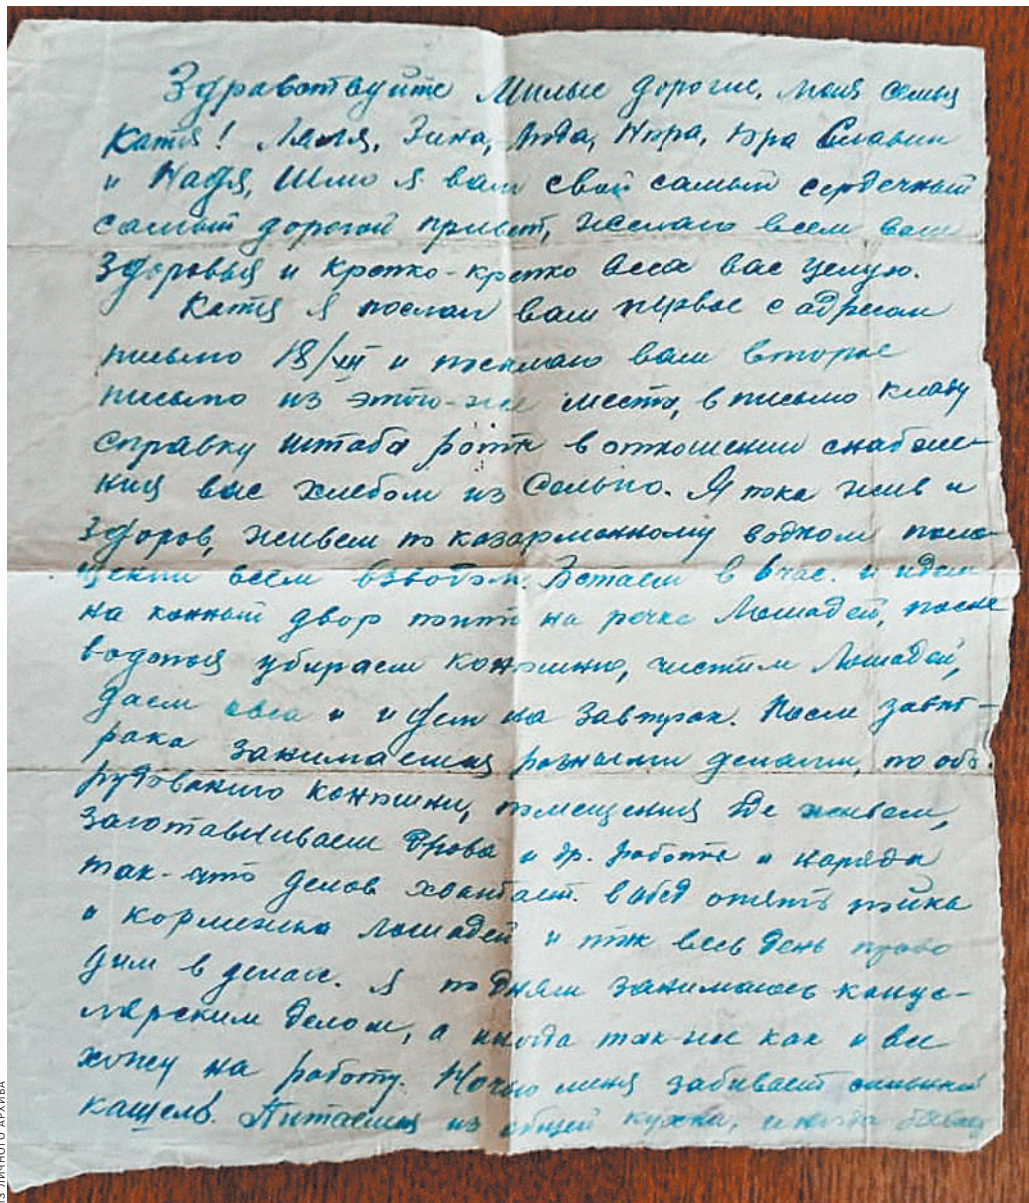 Здравствуйте Милые дорогие, моя семья
Катя! Ляля, Зина, Люда, Нюра, Юра Славик
и Надя, Шлю я вам свой самый сердечный
самый дорогой привет, желаю всем вам
Здоровья и Крепко-крепко всех вас целую.
Катя я послал вам первое с адресом
письмо 18/XII и посылаю вам второе
письмо из этого-же места, в письмо кладу
справку штаба роты в отношении снабже-
ния вас хлебом из Сельпо. Я пока жив и
Здоров, живем по казарменному водном поме-
щении всем взводом. Встаем в 6 час. и идем
на конный двор поить на речке Лошадей, после
водопоя убираем конюшню, чистим Лошадей,
даем овса и идем на завтрак. После завт-
рака занимаемся разными делами, по обо-
рудованию конюшни, помещения где живем,
Заготавливаем Дрова и др. работы и наряды
так-что делов хватает. В обед опять пойка
и кормежка лошадей и так весь день прово
дим в делах. Я по дням занимаюсь канце-
лярским делом, а иногда так-же как и все
хожу на работу. Ночью меня забивает сильный
кашель. Питаемся из общей кухни, иногда
ИЗ ЛИЧНОГО АРХИВА